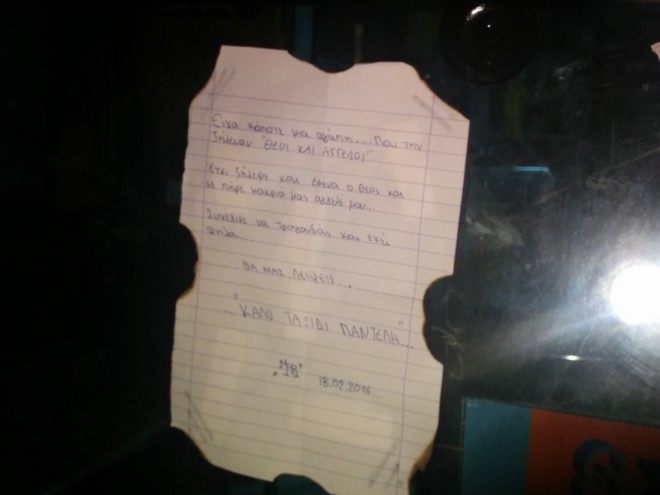 Είχα κάποτε μια αγάπη.... που την
ζήλευαν "ΘΕΟΙ ΚΑΙ ΑΓΓΕΛΟΙ"
Έτσι ζήλεψε και εσένα ο Θεός και
σε πήρε μακριά μας άγγελέ μου...
Συνέχισε να τραγουδάς και εκεί
ψηλά...
ΘΑ ΜΑΣ ΛΕΙΨΕΙΣ...
..."ΚΑΛΟ ΤΑΞΙΔΙ ΠΑΝΤΕΛΗ"...
18.02.2016